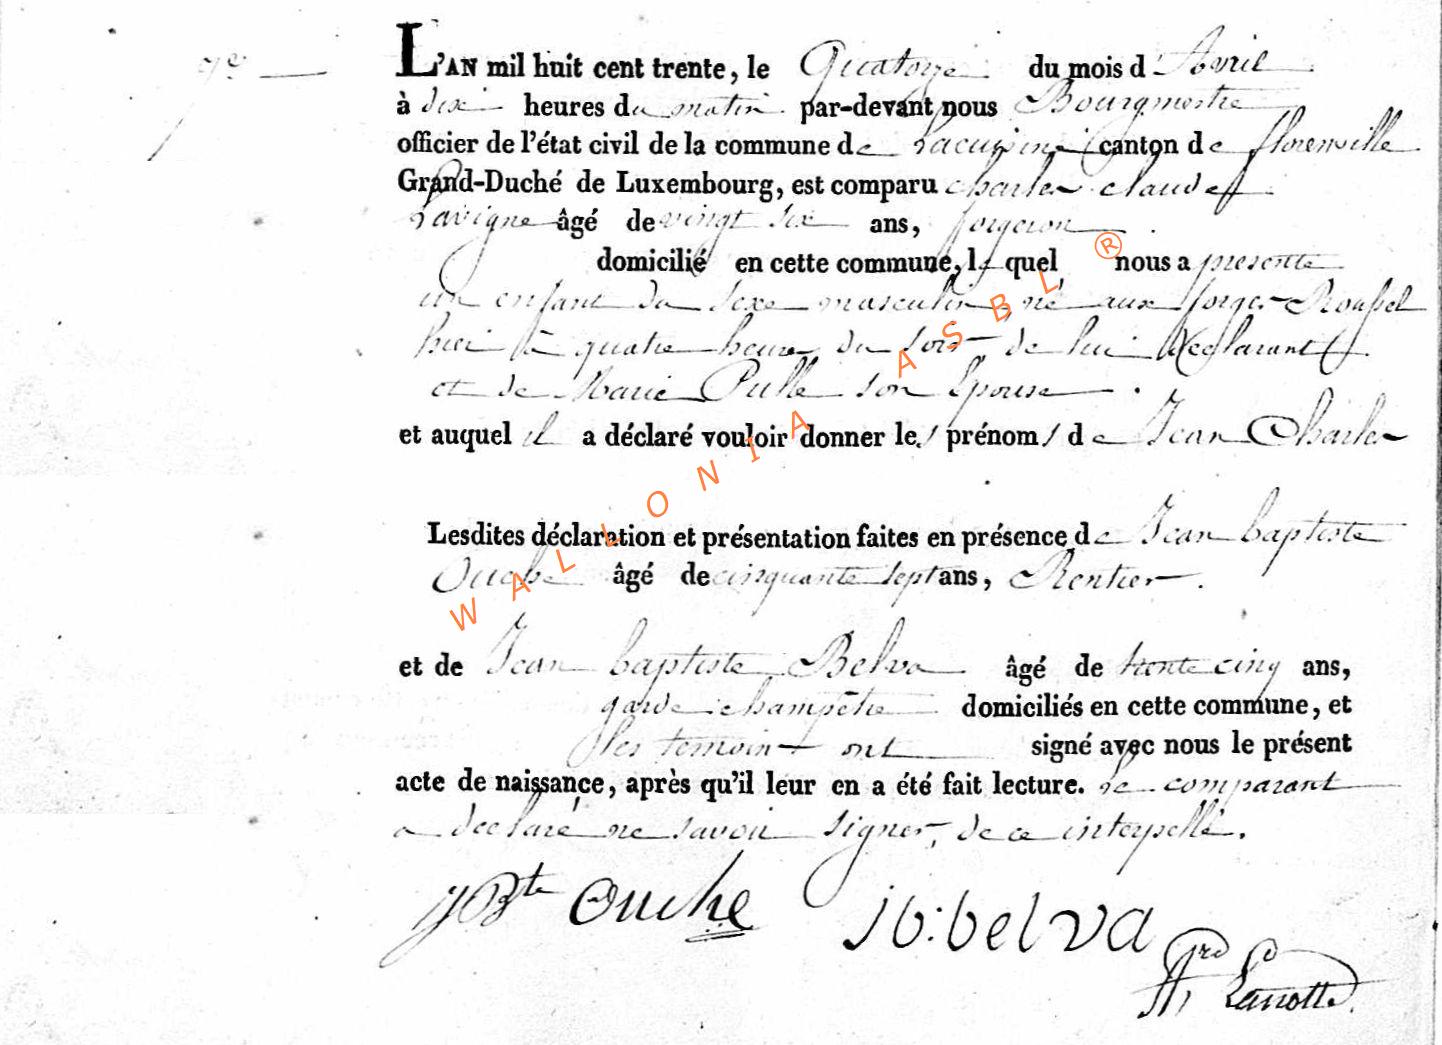 9e
L'AN mil huit cent trente, le Quatorze du mois d'Avril
à dix heures du matin par-devant nous Bourgmestre
officier de l'état civil de la commune de Lacuisine canton de florenville
Grand-Duché de Luxembourg, est comparu charles claude
Lavigne âgé de vingt six ans, forgeron
domicilié en cette commune, le quel nous a presenté
un enfant du sexe masculin né aux forges Roussel
hier à quatre heures du soir de lui déclarant
et de Marie Pulle son Epouse.
et auquel il a déclaré vouloir donner les prénoms de Jean Charles
Lesdites déclaration et présentation faites en présence de Jean baptiste
Ouche âgé de cinquante sept ans, Rentier.
et de Jean baptiste Belva âgé de trente cinq ans,
garde champêtre domiciliés en cette commune, et
les temoins ont signé avec nous le présent
acte de naissance, après qu'il leur en a été fait lecture. Le comparant
a déclaré ne savoir signer, de ce interpellé.
JBte Ouche jb:belva
Lanotte
WALLONIA ASBL ®